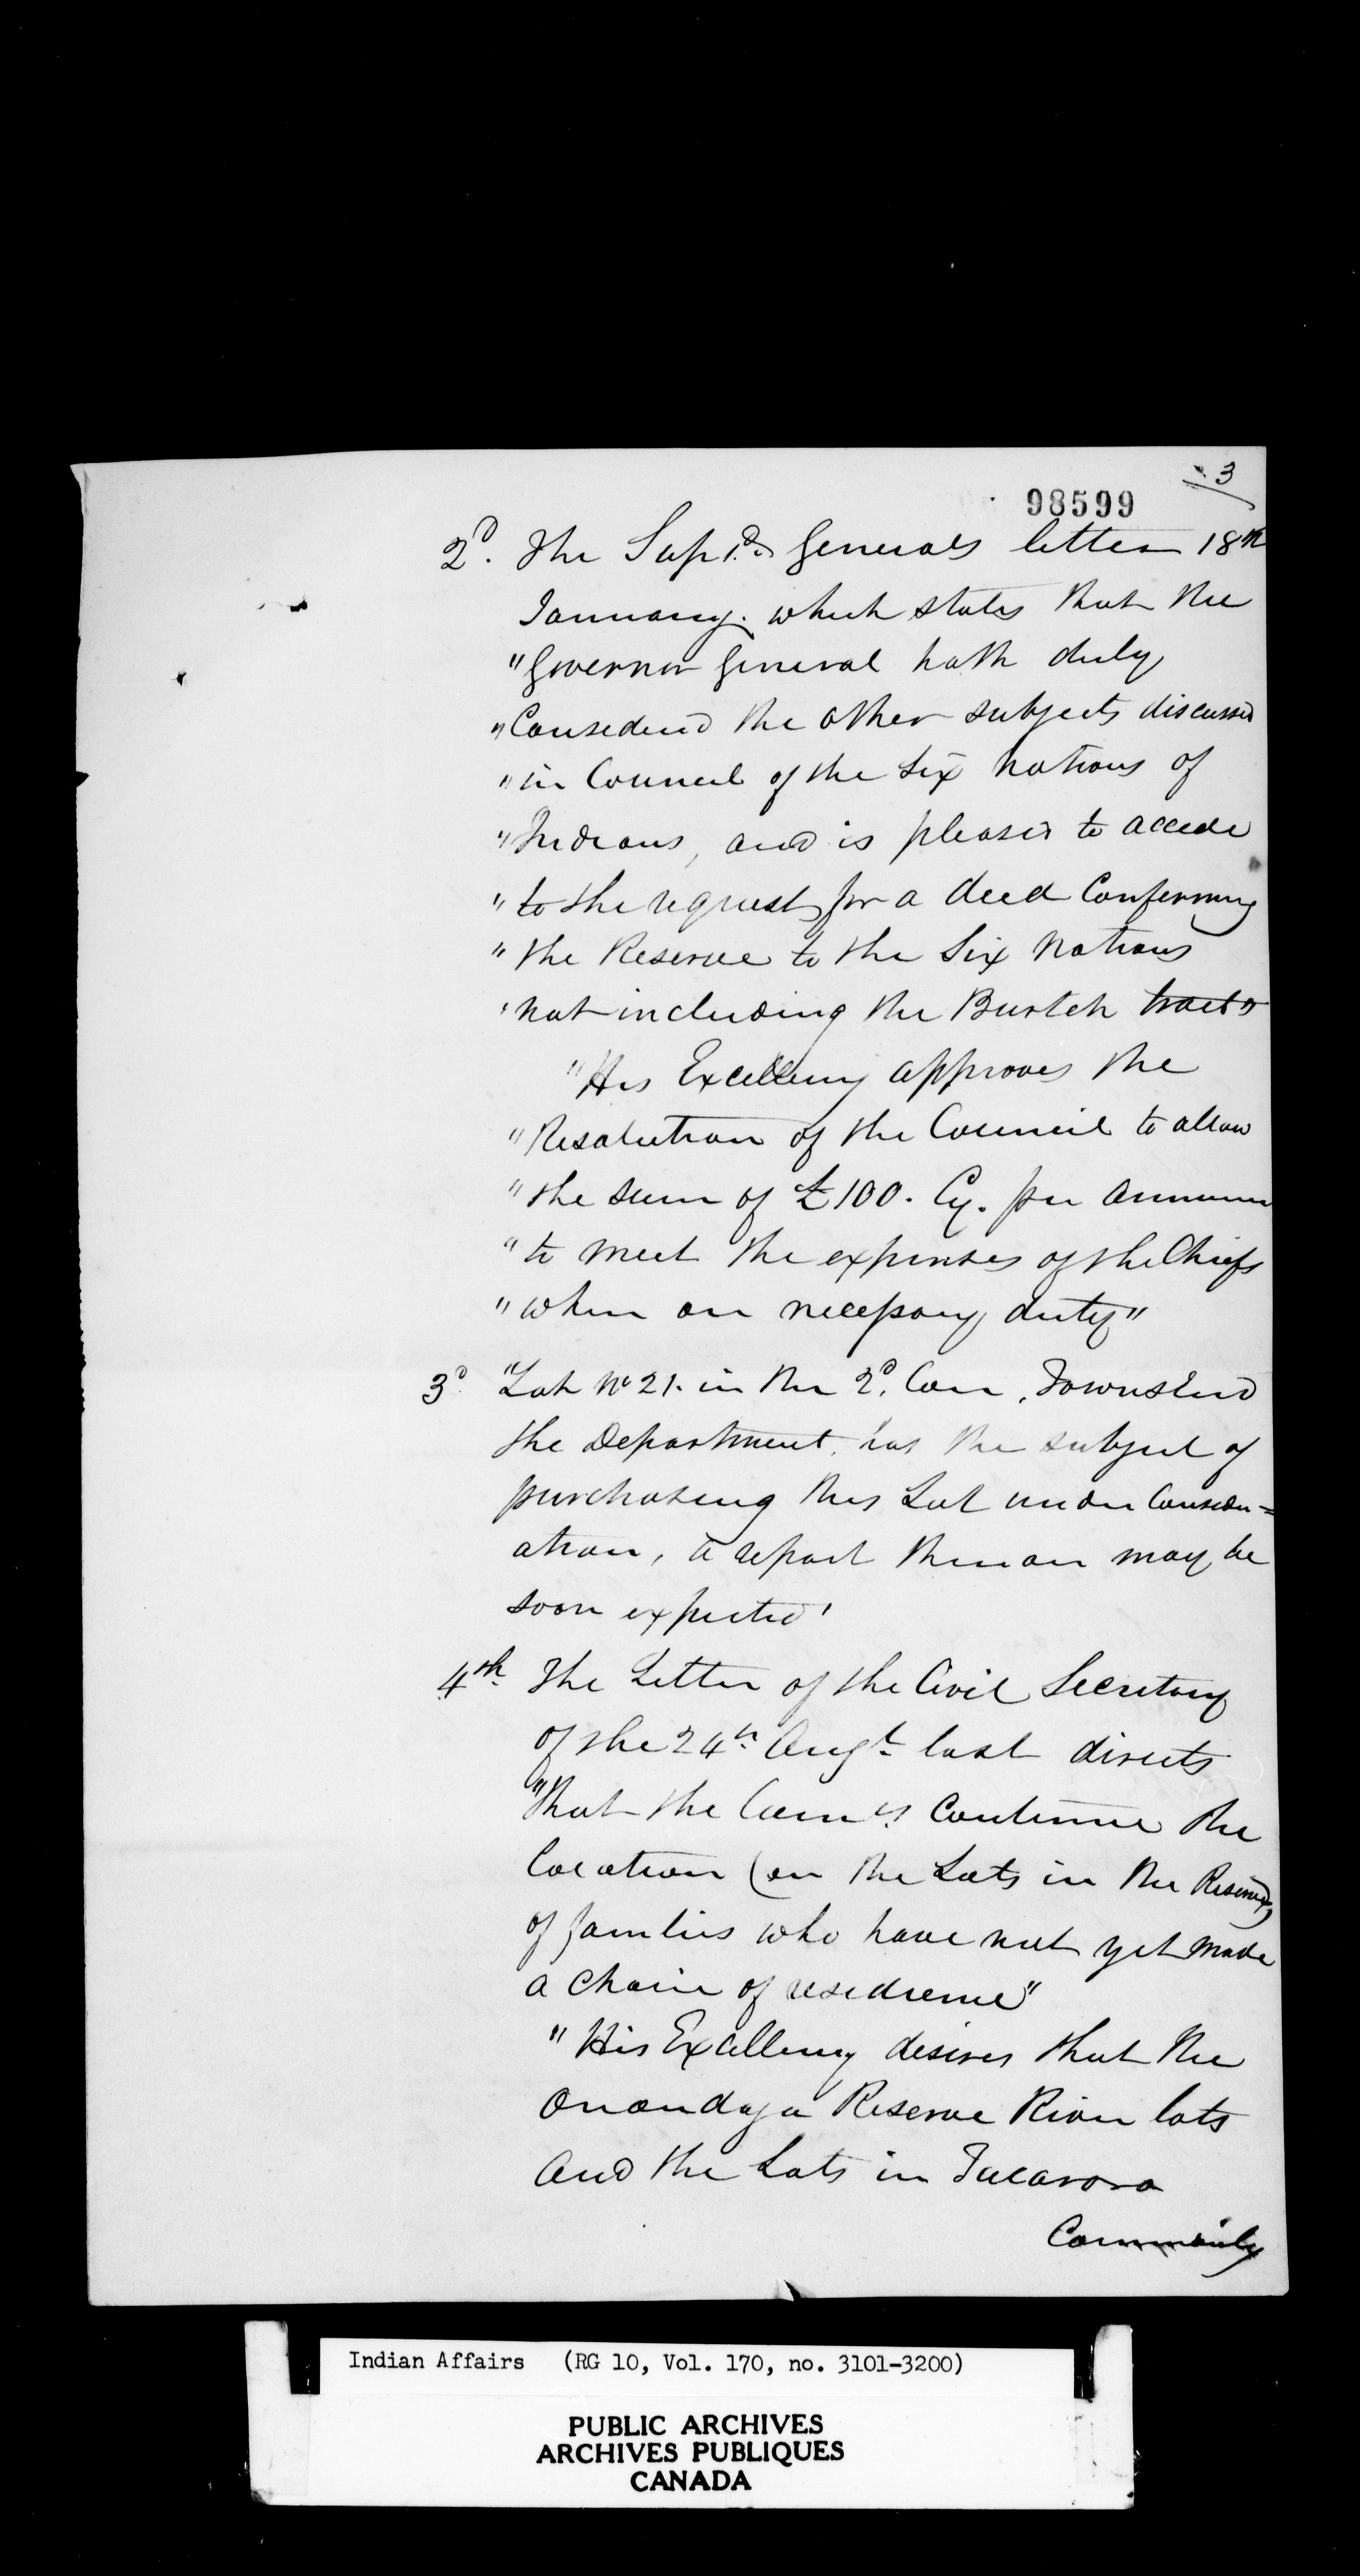 3
98599
2d. The Supt. Generals letter 18th
January. which states that the
"Governor General hath duly
"Considered the other subjects discussed
"in Council of the Six Nations of
"Indians, and is pleased to accede
"to the request for a deed Confirming
"the Reserve to the Six Nations
"not including the Burtch tract"
"His Excellency approves the
"Resolution of the Council to allow
"the sum of £100. Cy. per annum
"to meet the expenses of the Chiefs
"when on necessary duty"
3d. "Lot No 21. in the 2d. Con, Townsend
the Department, has the subject of
purchasing this Lot under Consider=
ation, a report thereon may be
soon expected'
4th. The Letter of the Civil Secretary
of the 24th Augt. last directs
"that the Comrs. Continue the
location (on the Lots in the Reserve)
of families who have not yet made
a choice of residence"
"His Excellency desires that the
Onondaga Reserve River lots
and the Lots in Tucarora
Indian Affairs (RG 10, Vol. 170, no. 3101-3200)
PUBLIC ARCHIVES
ARCHIVES PUBLIQUES
CANADA